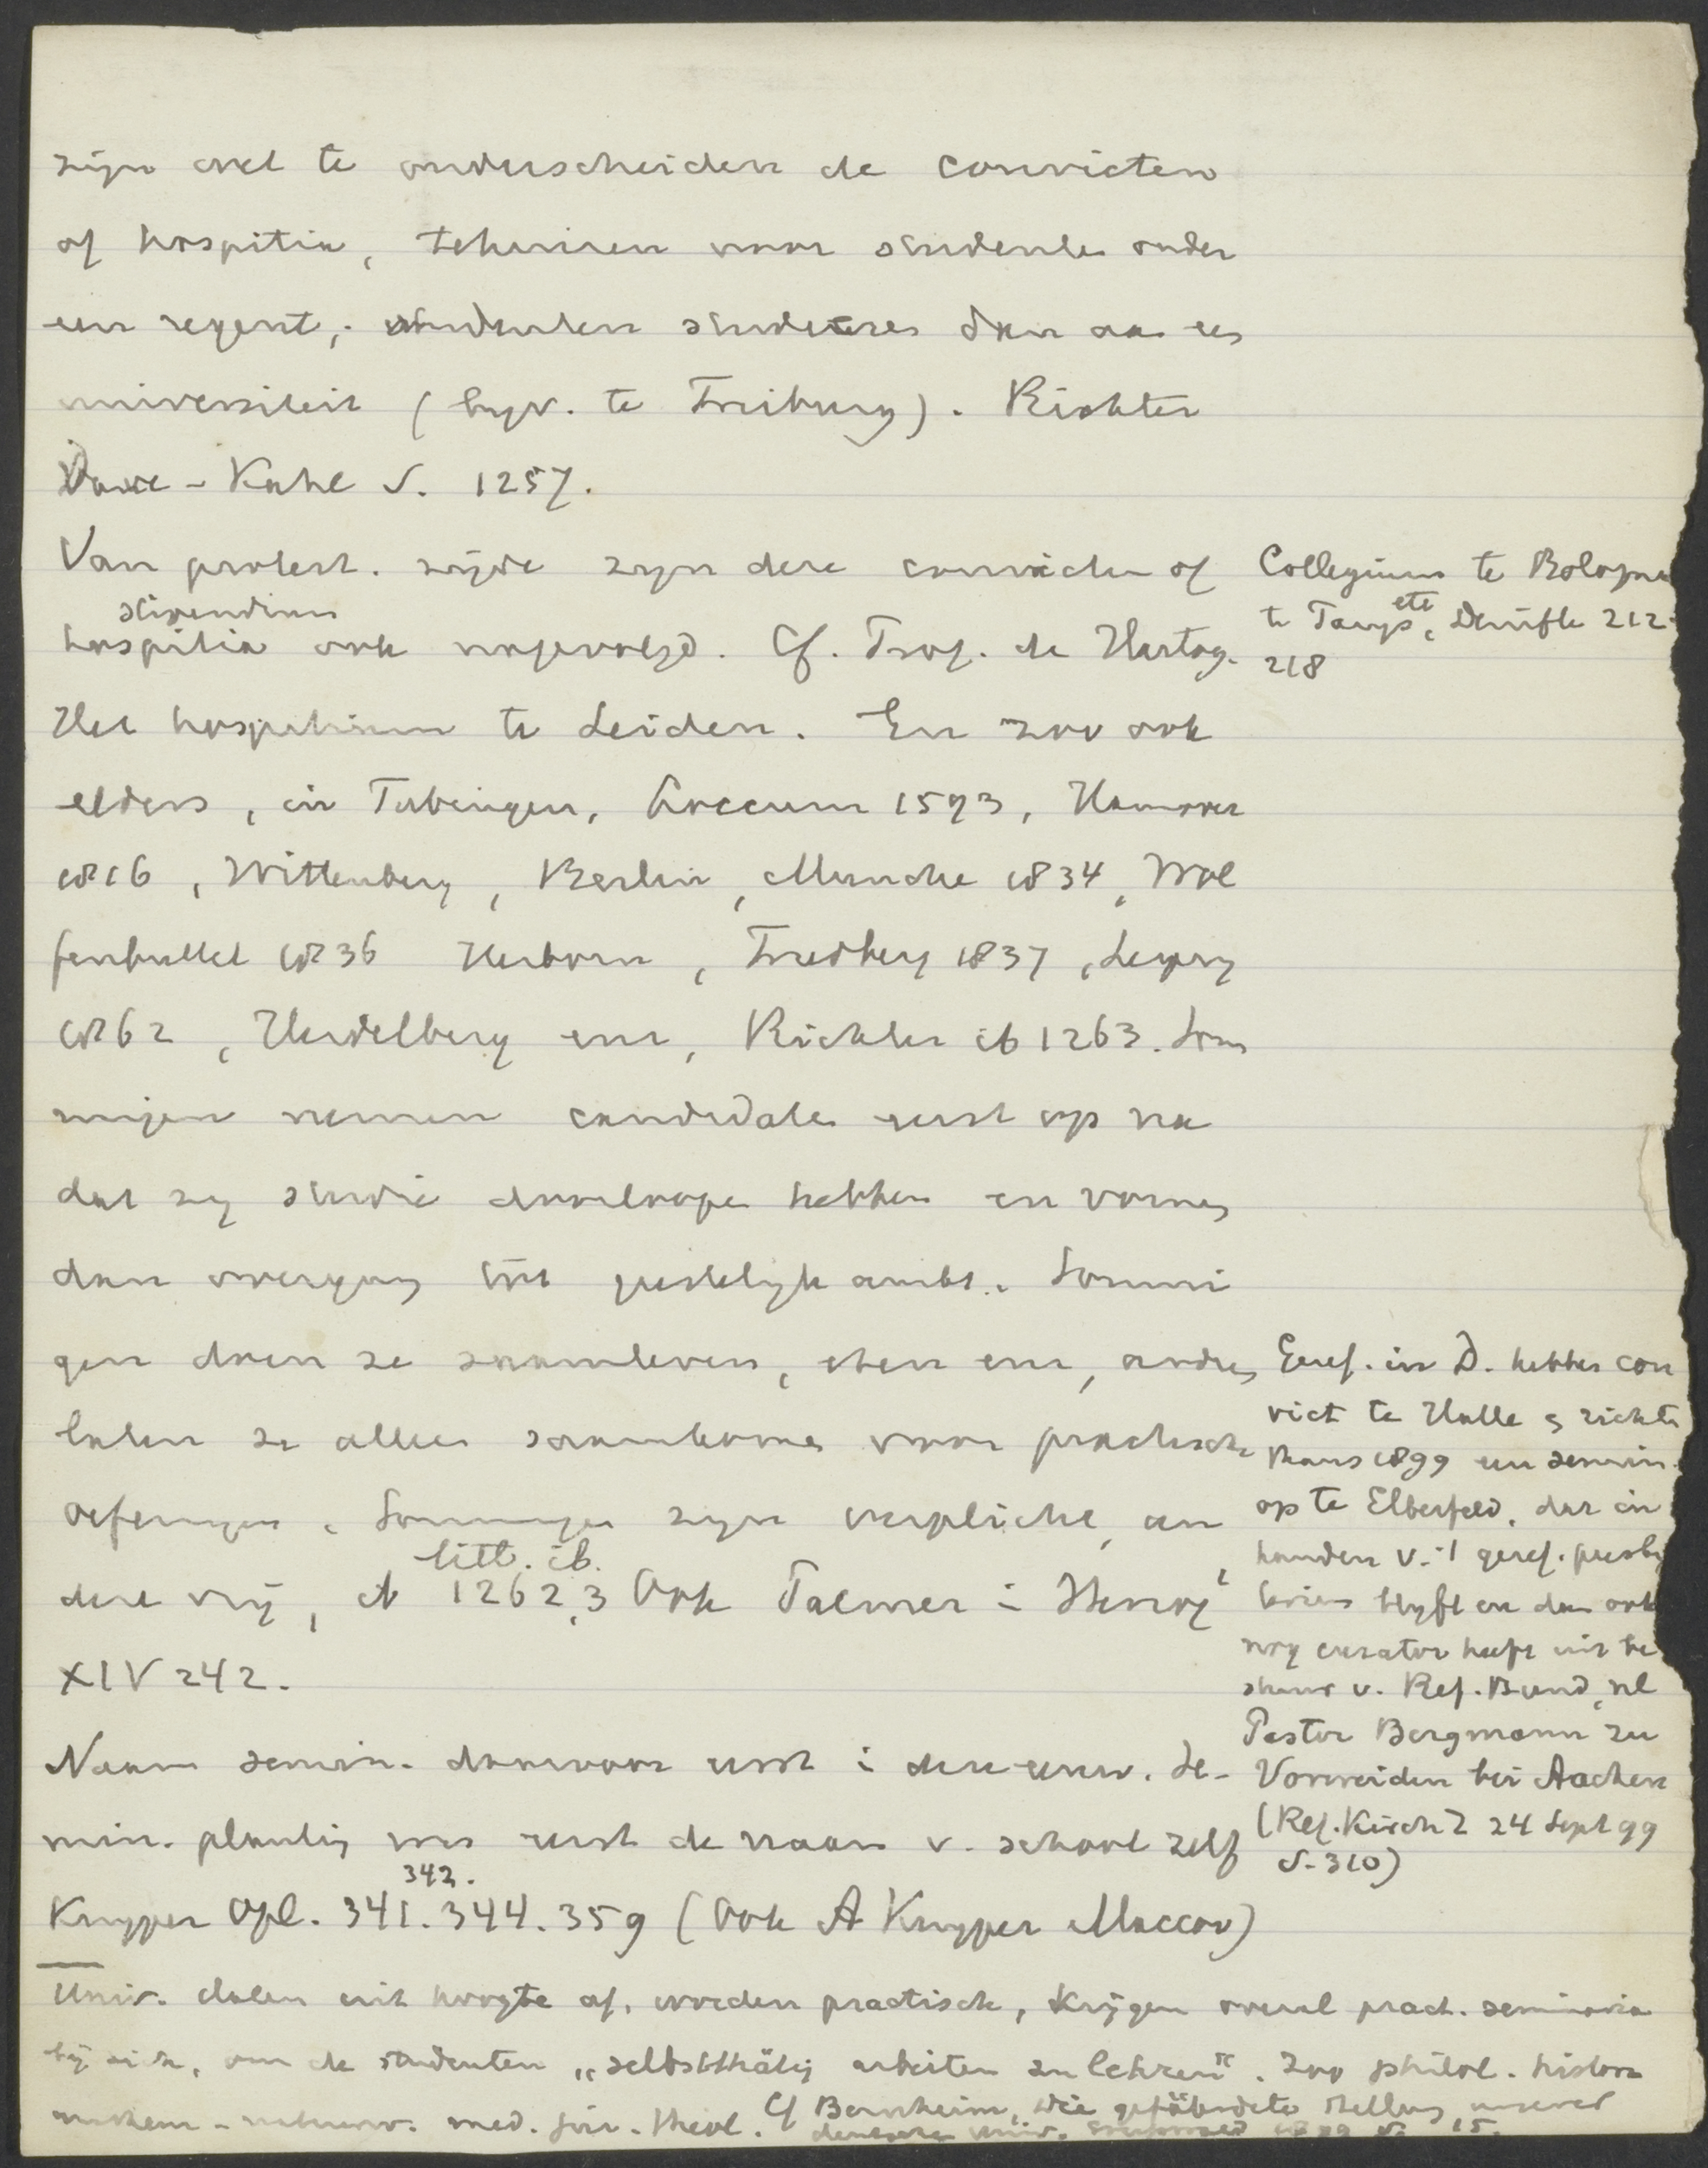 zijn wel te onderscheiden de convicten
of hospitia, tehuizen voor studenten onder
een regent; studenten studeeren dan aan een
universiteit (byv. te Freiburg). Richter
Dove - Kahl S. 1257.
Van protest. zijde zyn deze convicten of
stipendium
hospitia ook nagevolgd. Cf. Prof. de Hartog.
Het hospitium te Leiden. En zoo ook
elders, in Tubingen, Loccum 1593, Hannover
1816, Wittenberg, Berlin, Munchen 1834, Wol
fenbuttel 1836 Herborn, Friedberg 1837, Leipzig
1862, Heidelberg enz, Richter ib 1263. Som
migen nemen candidaten eerst op na
dat zy studie doorloopen hebben en vormen
dan overgang tot geestelyk ambt. Sommi
gen doen ze saamleven, eten enz, andren
laten ze alleen saamkomen voor practische
oefeningen. Sommigen zyn verplicht, an
litt. ib.
dere vrij, ib 1262,3 Ook Palmer in Herzog²
XIV 242.
Naam semin. daarvoor eerst in deze univ. se-
min. plaatsing was eerst de naam v. school zelf
342.
Kuyper Opl. 341. 344. 359 (Ook A Kuyper Maccov)
Univ. dalen uit hoogte af, worden practisch, krijgen overal pract. seminaria
bij zich, om de studenten „selbstthätig arbeiten zu lehren". Zoo philol. histor
mathem - naturw. med. jur. theol. Cf Bernheim, die gefährdete Stellung unserer
deutschen Univ. Greifswald 1899 S. 15.
Collegium te Bologna
te Parys etc, Denifle 212-
218
Geref. in D. hebben con
vict te Halle & richten
thans 1899 een semin.
op te Elberfeld, dat in
handen v. 't geref. presby
terium blyft en dan ook
nog curator heeft uit be
stuur v. Ref. Bund, nl
Pastor Bergmann zu
Vorweiden bei Aachen
(Ref. Kirchz 24 Sept 99
S. 310)